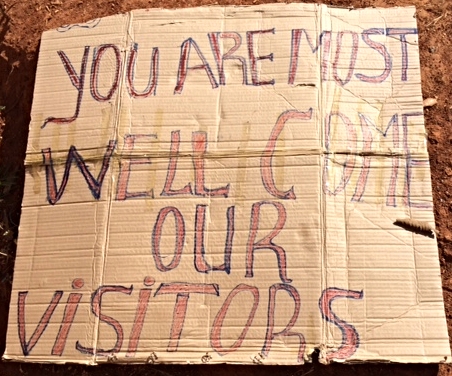 YOU ARE MOST
WELL COME
OUR
ViSiTORS